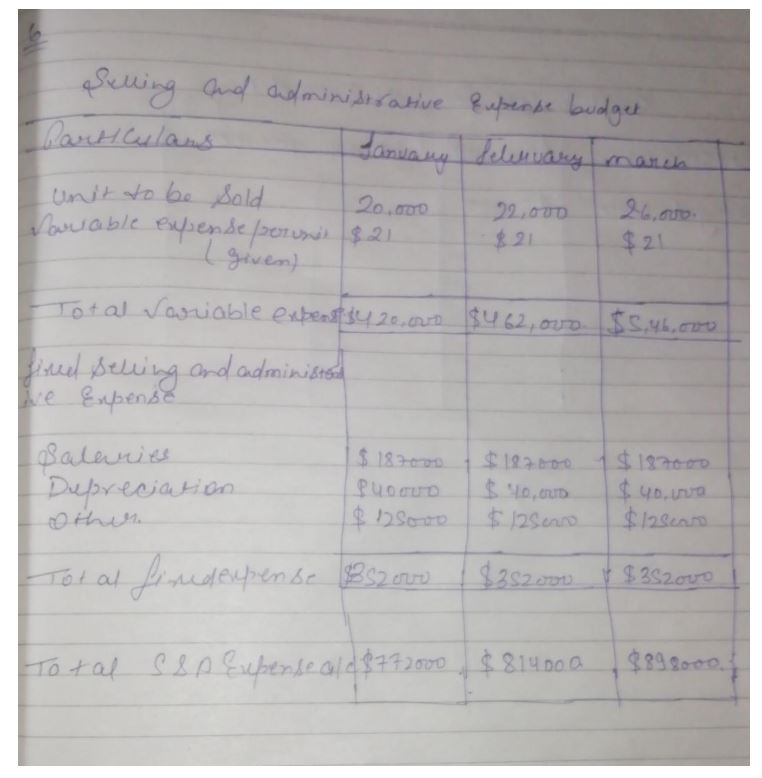 6
Selling and administrative Expense budget
Particulars January February march
unit to be Sold 20,000 22,000 26,000.
Variable expense/perunit $21 $21 $21
(given)
Total Variable expense $420,000 $462,000. $5,46,000
fixed Selling and administrat
ive Expense
Salaries $187000 $187000 $187000
Depreciation $40000 $40,000 $40,000
Other. $125000 $125000 $125000
Total fixedexpense $352000 $352000 $352000
Total S&A Expense $772000 $814000 $898000.